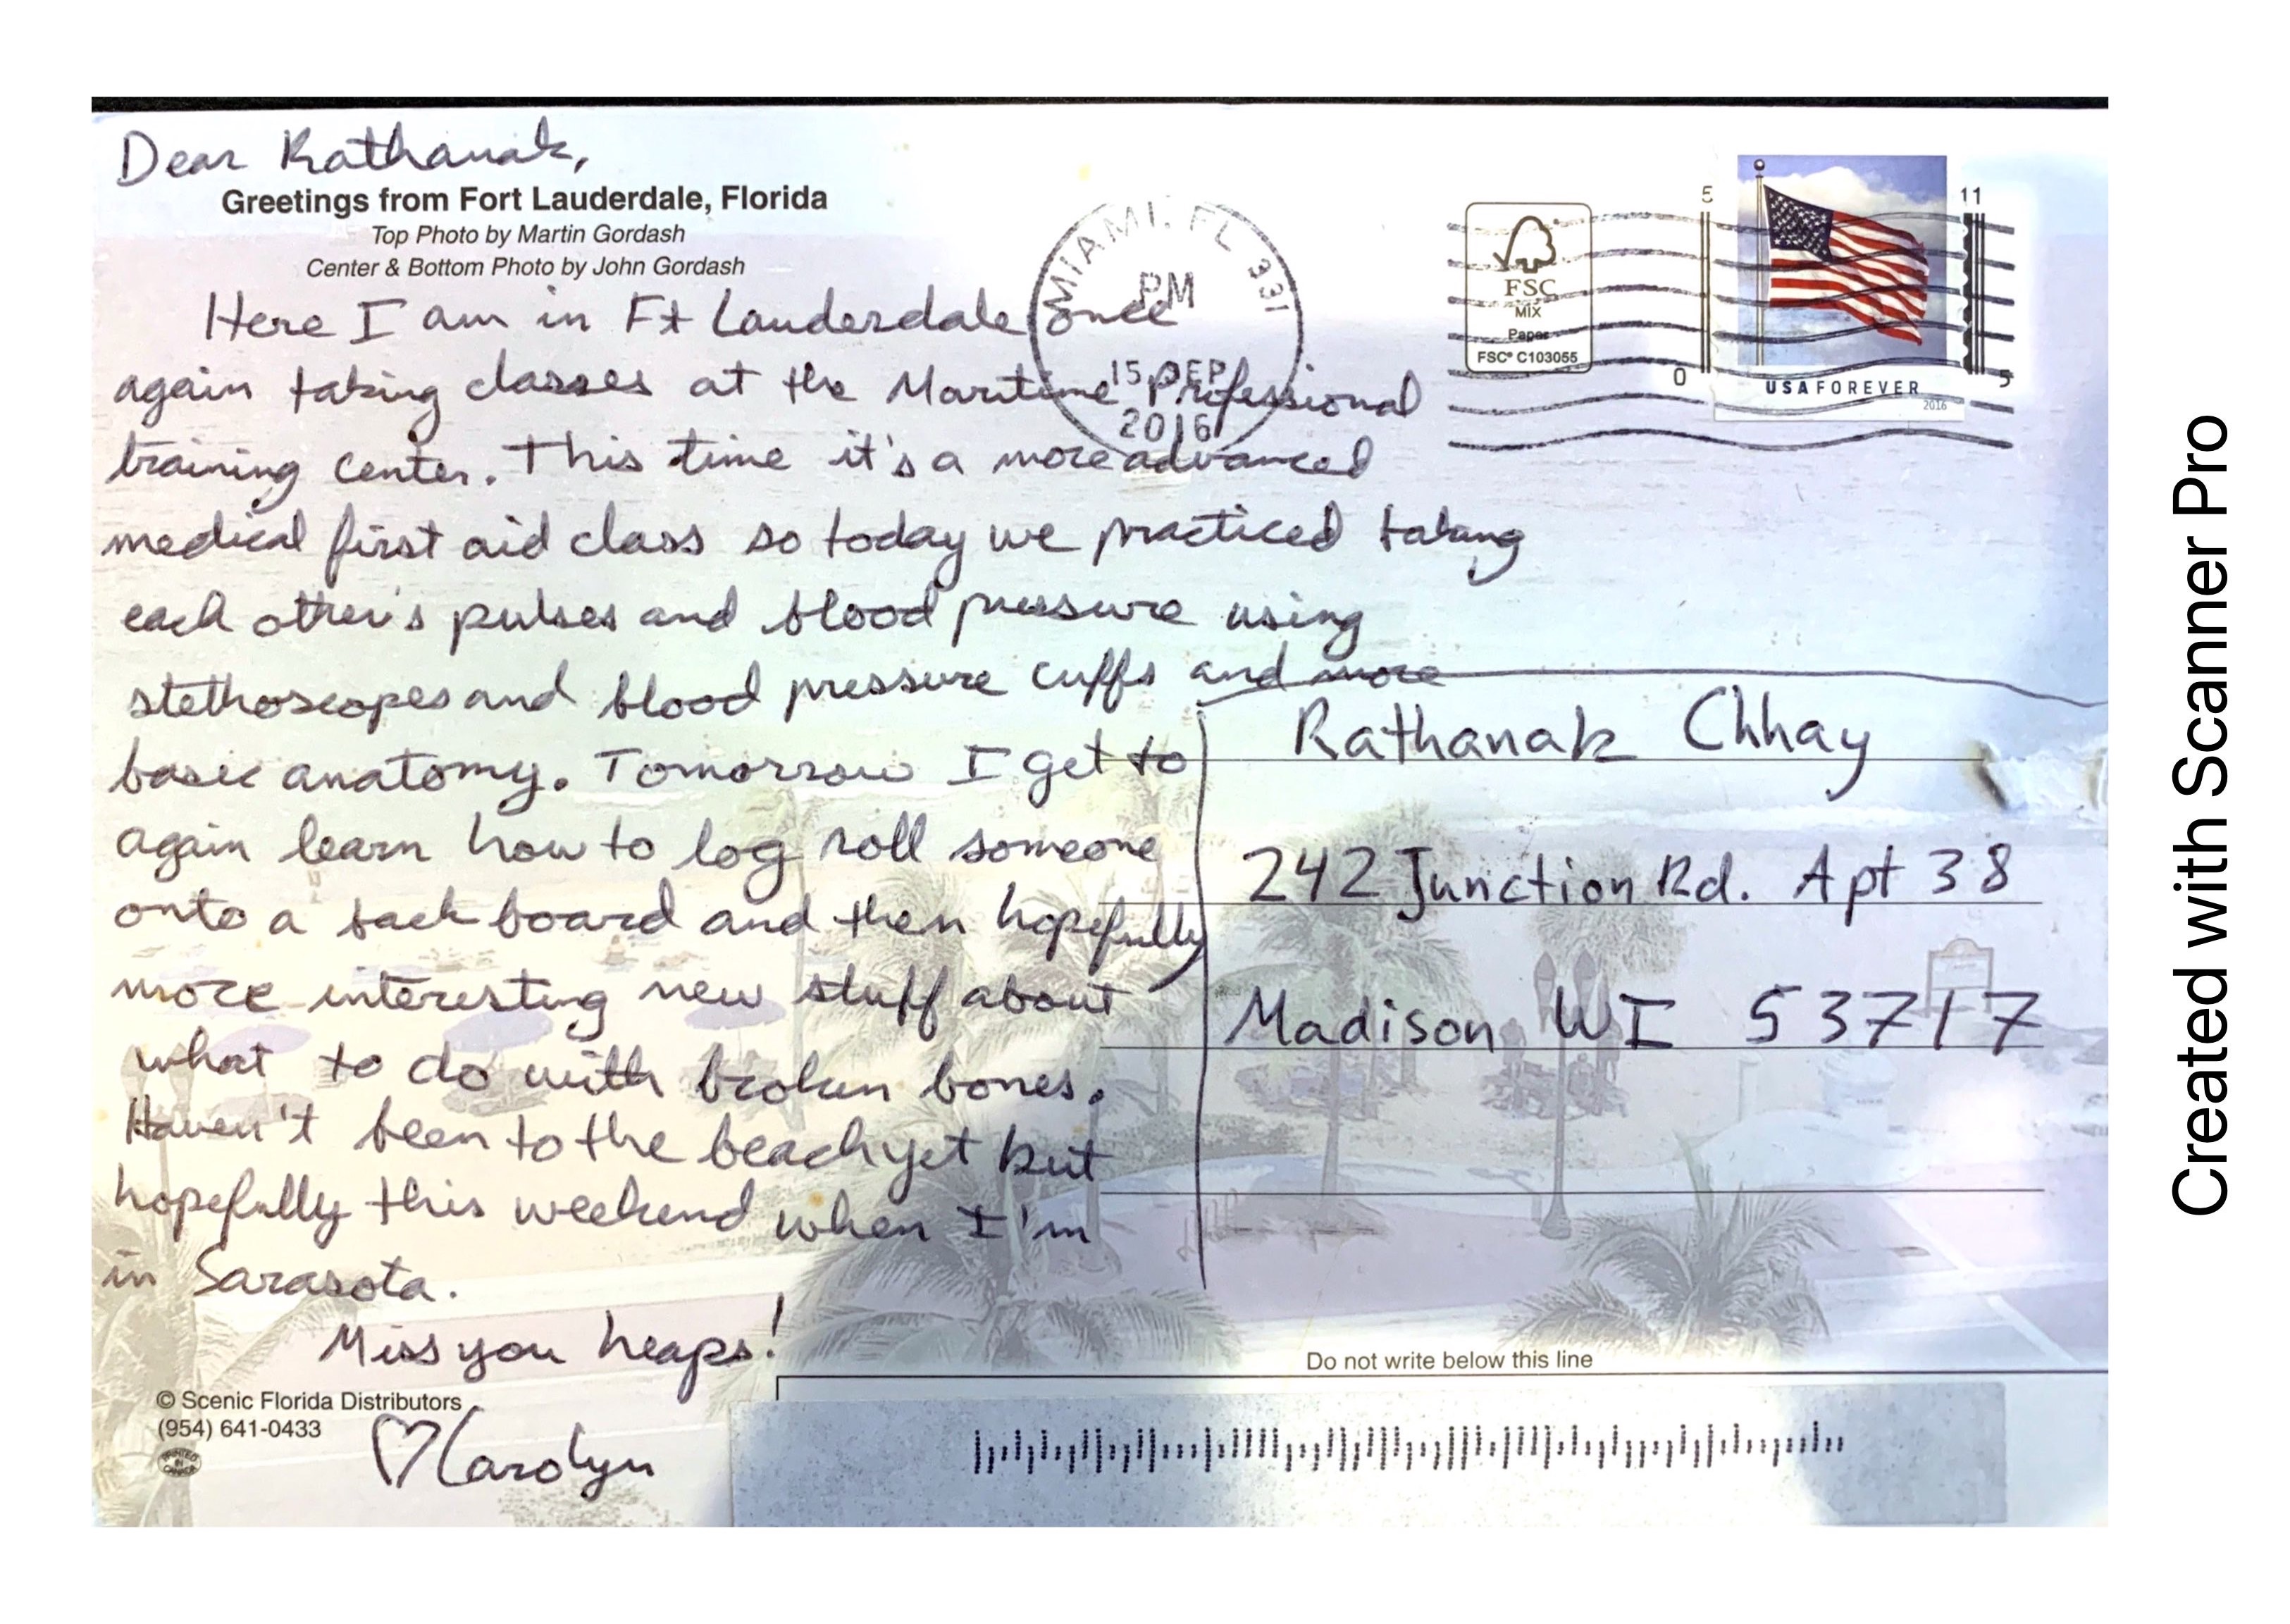 Dear Rathanak,
Greetings from Fort Lauderdale, Florida
Top Photo by Martin Gordash
Center & Bottom Photo by John Gordash
Here I am in Ft Lauderdale once
again taking classes at the Maritime Professional
training center. This time it's a more advanced
medical first aid class so today we practiced taking
each other's pulses and blood pressure using
stethoscopes and blood pressure cuffs and more
basic anatomy. Tomorrow I get to
again learn how to log roll someone
onto a back board and then hopefully
more interesting new stuff about
what to do with broken bones.
Haven't been to the beach yet but
hopefully this weekend when I'm
in Sarasota.
Miss you heaps!
♡Carolyn
© Scenic Florida Distributors
(954) 641-0433
PRINTED IN CANADA
MIAMI, FL 331
PM
15 SEP
2016
FSC
MIX
Paper
FSC® C103055
5 11
0 5
USA FOREVER
2016
Rathanak Chhay
242 Junction Rd. Apt 38
Madison WI 53717
Do not write below this line
Created with Scanner Pro